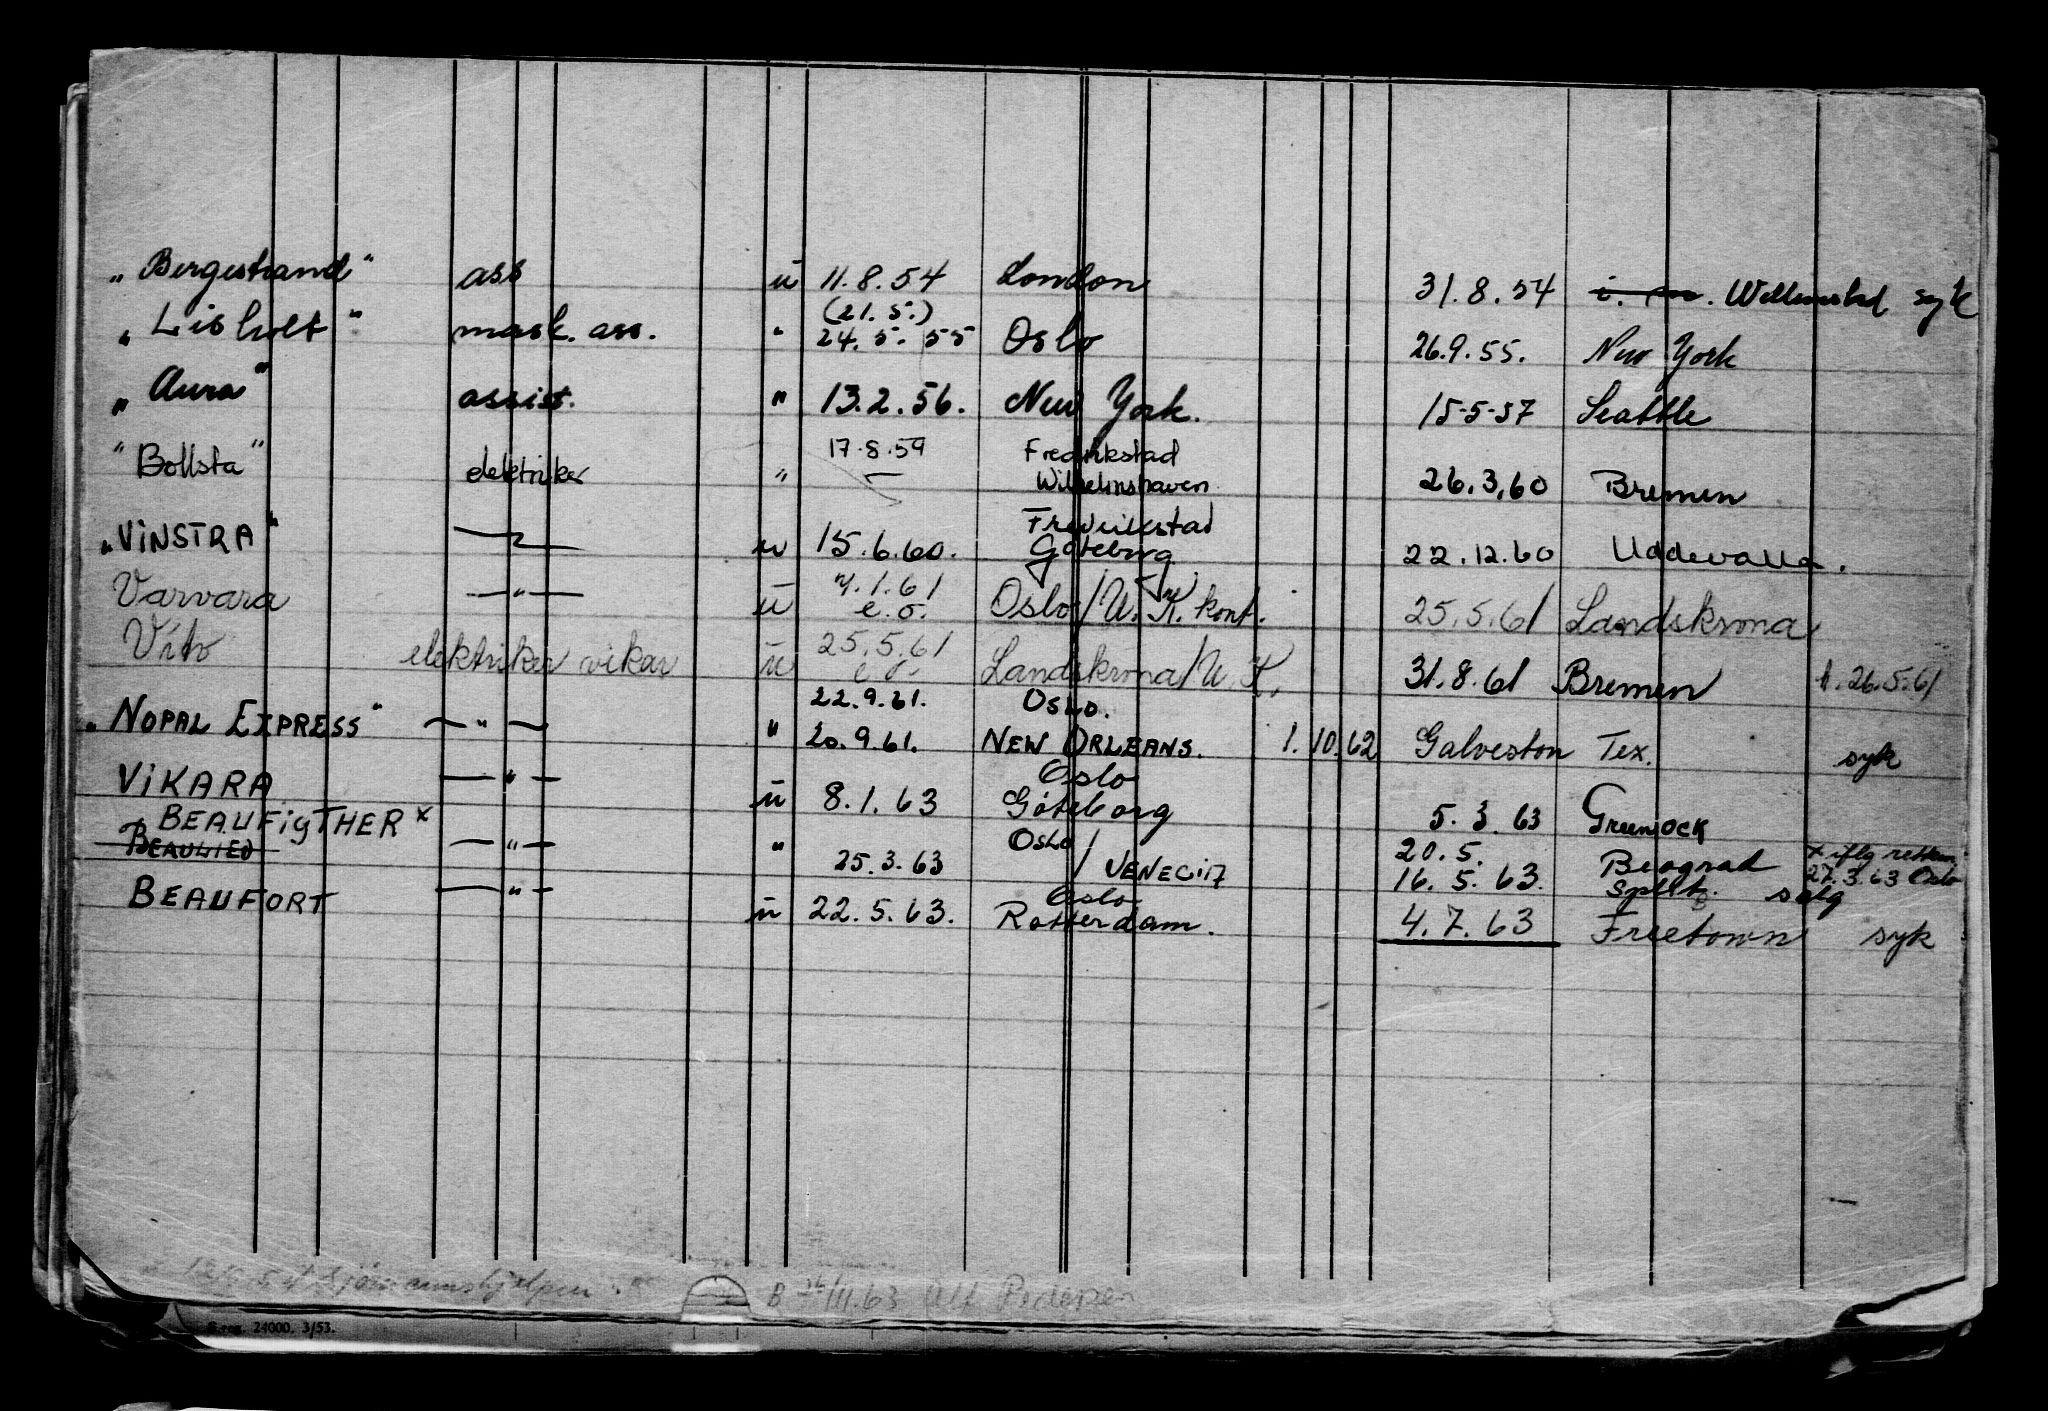 „Bergestrand" ass ū 11.8.54 London 31.8.54 i. m. Willemstad syk
„Lisholt" mask. ass. " (21.5.) 24.5.55 Oslo 26.9.55. New York
„Aura" assist. " 13.2.56. New York. 15-5-57 Seattle
"Bollsta" elektriker " 17.8.59 — Fredrikstad Wilhelmshaven 26.3.60 Bremen
„VINSTRA" — ū 15.6.60. Fredrikstad Göteborg 22.12.60 Uddevalla.
Varvara —"— ū 7.1.61 e.o. Oslo/U.K. kont. 25.5.61 Landskrona
Vito elektriker vikar ū 25.5.61 e o Landskrona/U.K. 31.8.61 Bremen A. 26.5.61
„NOPAL EXPRESS" —"— " 22.9.61. 20.9.61. OSLO. NEW ORLEANS. 1.10.62 Galveston Tex. syk
VIKARA —"— ū 8.1.63 Oslo Göteborg 5.3.63 Greenock
BEAUFIGTHER x
BEAULIEU —"— " 25.3.63 OSLO / VENECIA 20.5. 16.5.63. Beograd Split. salg x iflg rettem. 27.3.63 Oslo
BEAUFORT —"— ū 22.5.63. Oslo Rotterdam. 4.7.63 Freetown syk
Sjømannshjelpen B 26/11.63 Ulf Pedersen
24000. 3/53.